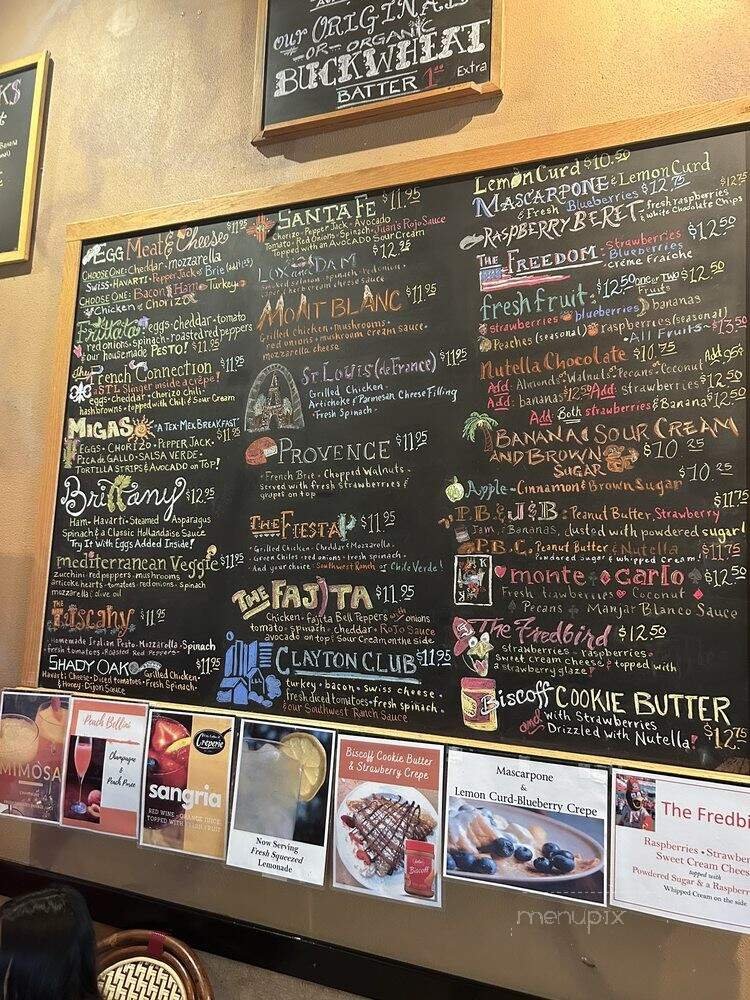 our ORIGINAL
-OR- ORGANIC
BUCKWHEAT
BATTER 1.00 Extra
EGG Meat & Cheese $11.95
CHOOSE ONE: Cheddar · mozzarella
Swiss · Havarti · Pepper Jack · Brie
CHOOSE ONE: Bacon · Ham · Turkey
Chicken · Chorizo
Frittata: eggs · cheddar · tomato
red onions · spinach · roasted red peppers
& our housemade PESTO! $11.95
The French Connection $11.95
a STL Slinger inside a crêpe!
eggs · cheddar · Chorizo Chili
hashbrowns · topped with Chili & Sour Cream
MIGAS "A TEX-MEX BREAKFAST" $11.95
EGGS · CHORIZO · PEPPER JACK ·
PICA de GALLO · SALSA VERDE ·
TORTILLA STRIPS & AVOCADO on Top!
Brittany $12.95
Ham · Havarti · Steamed Asparagus
Spinach & a Classic Hollandaise Sauce
Try It With Eggs Added Inside!
mediterranean Veggie $11.95
zucchini · red peppers · mushrooms
artichoke hearts · tomatoes · red onions · spinach
mozzarella / olive oil
THE Tuscany $11.95
Homemade Italian Pesto · Mozzarella · Spinach
fresh tomatoes · Roasted Red Peppers
SHADY OAK Grilled Chicken · $11.95
Havarti Cheese · Diced tomatoes · Fresh Spinach ·
& Honey · Dijon Sauce
SANTA FE $11.95
Chorizo · Pepper Jack · Avocado
Tomato · Red Onions · Spinach · Juan's Rojo Sauce
Topped with an Avocado Sour Cream
LOX and DAM $12.95
Smoked salmon · spinach · red onion ·
caper herb cream cheese sauce
MONT BLANC $11.95
Grilled chicken · mushrooms ·
red onions · mushroom cream sauce ·
mozzarella cheese
ST LOUIS (de France) $11.95
Grilled Chicken ·
Artichoke & Parmesan Cheese Filling
· Fresh Spinach ·
PROVENCE $11.95
· French Brie · Chopped Walnuts ·
served with fresh strawberries &
grapes on top
THE FIESTA $11.95
· Grilled Chicken · Cheddar & Mozzarella ·
Green Chiles · red onions · fresh spinach ·
And your choice: Southwest Ranch or Chile Verde!
THE FAJITA $11.95
Chicken · Fajita Bell Peppers with onions
tomato · spinach · cheddar · RoJo Sauce
avocado on top! Sour Cream on the side
CLAYTON CLUB $11.95
turkey · bacon · swiss cheese ·
fresh diced tomatoes · fresh spinach ·
& our Southwest Ranch Sauce
Lemon Curd $10.50
MASCARPONE & Lemon Curd
& Fresh Blueberries $12.75
RASPBERRY BERET: fresh raspberries $12.75
& White Chocolate Chips
THE FREEDOM: Strawberries $12.50
Blueberries
· Crème Fraîche
fresh fruit: $12.50 one or TWO Fruits $12.50
strawberries blueberries bananas
Peaches (seasonal) raspberries (seasonal)
· ALL Fruits ~ $13.50
Nutella Chocolate $10.75
Add: Almonds · Walnuts · Pecans · Coconut Add 95¢
Add: bananas $12.50 Add: strawberries $12.50
Add: Both strawberries & Banana $12.50
BANANA & SOUR CREAM
AND BROWN SUGAR $10.25
Apple - Cinnamon & Brown Sugar $10.25
P.B. & J & B: Peanut Butter, Strawberry $11.75
Jam, Bananas, dusted with powdered sugar!
P.B.C. Peanut Butter & Nutella $11.75
Powdered Sugar & whipped Cream!
monte carlo $12.50
Fresh Strawberries Coconut
Pecans Manjar Blanco Sauce
The Fredbird $12.50
strawberries - raspberries -
sweet cream cheese & topped with
strawberry glaze!
Biscoff COOKIE BUTTER
and with Strawberries
Drizzled with Nutella! $12.75
MIMOSA
Peach Bellini
Champagne
&
Peach Puree
Creperie
sangria
RED WINE · ORANGE JUICE
TOPPED WITH FRESH FRUIT
Now Serving
Fresh Squeezed
Lemonade
Biscoff Cookie Butter
& Strawberry Crepe
Biscoff
Mascarpone
&
Lemon Curd-Blueberry Crepe
The Fredbi
Raspberries · Strawber
Sweet Cream Chees
topped with
Powdered Sugar & a Raspberr
Whipped Cream on the side
menupix